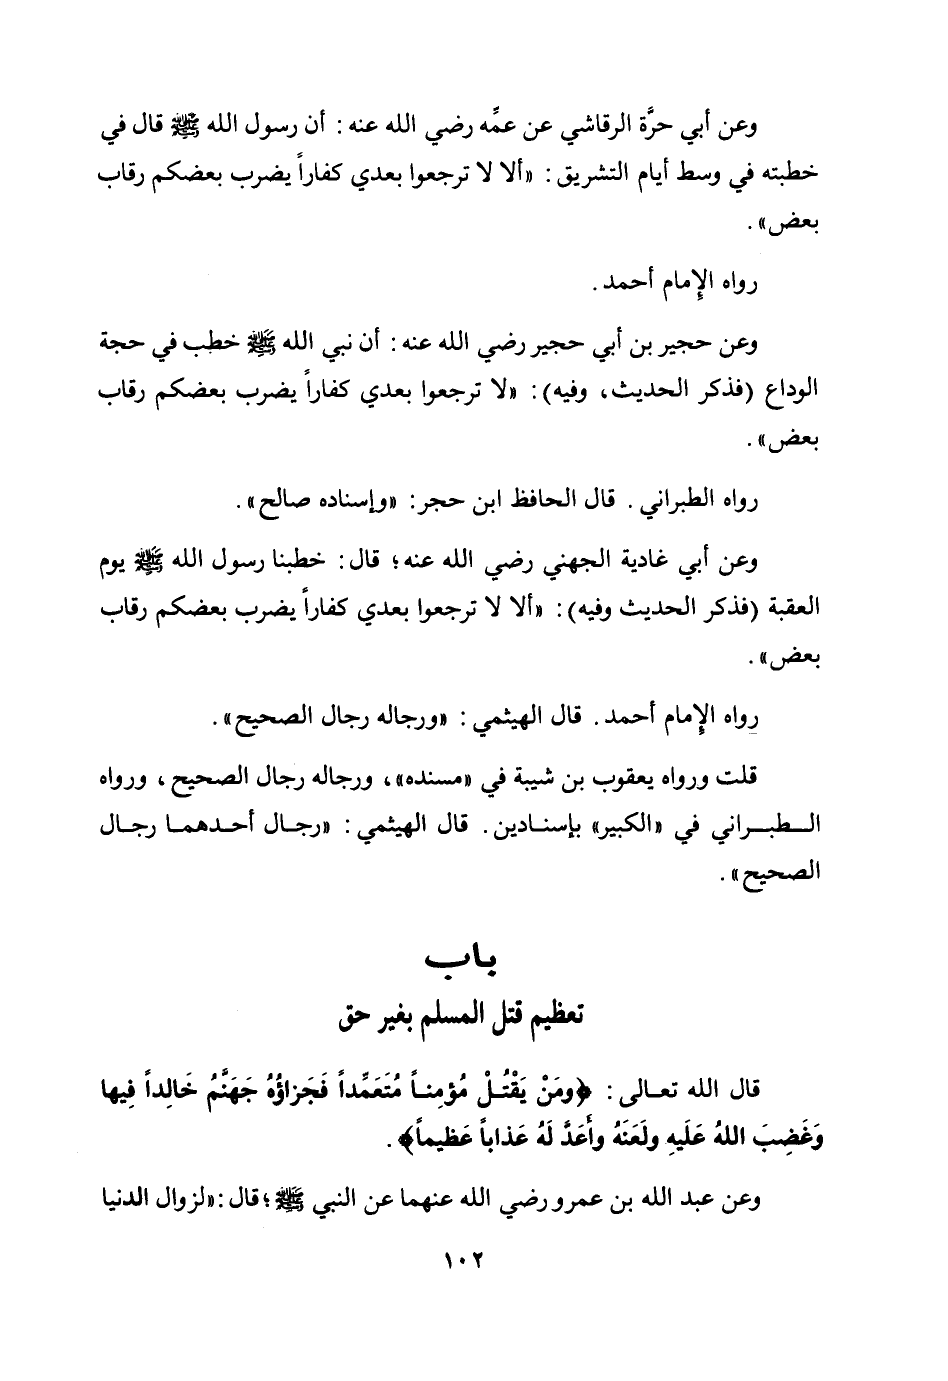 وعن أبي حرَّة الرقاشي عن عمِّه رضي الله عنه : أن رسول الله ﷺ قال في
خطبته في وسط أيام التشريق : «ألا لا ترجعوا بعدي كفاراً يضرب بعضكم رقاب
بعض» .
رواه الإمام أحمد .
وعن حجير بن أبي حجير رضي الله عنه : أن نبي الله ﷺ خطب في حجة
الوداع (فذكر الحديث، وفيه) : «لا ترجعوا بعدي كفاراً يضرب بعضكم رقاب
بعض» .
رواه الطبراني . قال الحافظ ابن حجر : «وإسناده صالح» .
وعن أبي غادية الجهني رضي الله عنه ؛ قال : خطبنا رسول الله ﷺ يوم
العقبة (فذكر الحديث وفيه) : «ألا لا ترجعوا بعدي كفاراً يضرب بعضكم رقاب
بعض» .
رواه الإمام أحمد . قال الهيثمي : «ورجاله رجال الصحيح» .
قلت ورواه يعقوب بن شيبة في «مسنده» ، ورجاله رجال الصحيح ، ورواه
الطبراني في «الكبير» بإسنادين . قال الهيثمي : «رجال أحدهما رجال
الصحيح» .
باب
تعظيم قتل المسلم بغير حق
قال الله تعالى : ﴿ومَنْ يَقْتُلْ مُؤمِناً مُتَعَمِّداً فَجَزاؤُهُ جَهَنَّمُ خَالِداً فِيها
وَغَضِبَ اللهُ عَلَيهِ ولَعَنَهُ وأَعَدَّ لَهُ عَذاباً عَظيماً﴾ .
وعن عبد الله بن عمرو رضي الله عنهما عن النبي ﷺ ؛ قال : «لزوال الدنيا
١٠٢